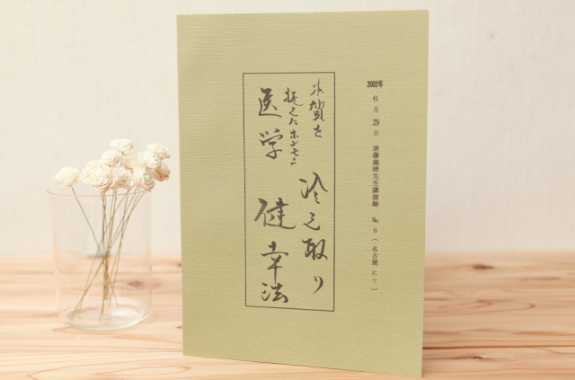 2002年 6月29日 進藤義晴先生講演録 № 6 (名古屋にて)
本質を
捉えたホンモノ
医学
冷え取り
健幸法